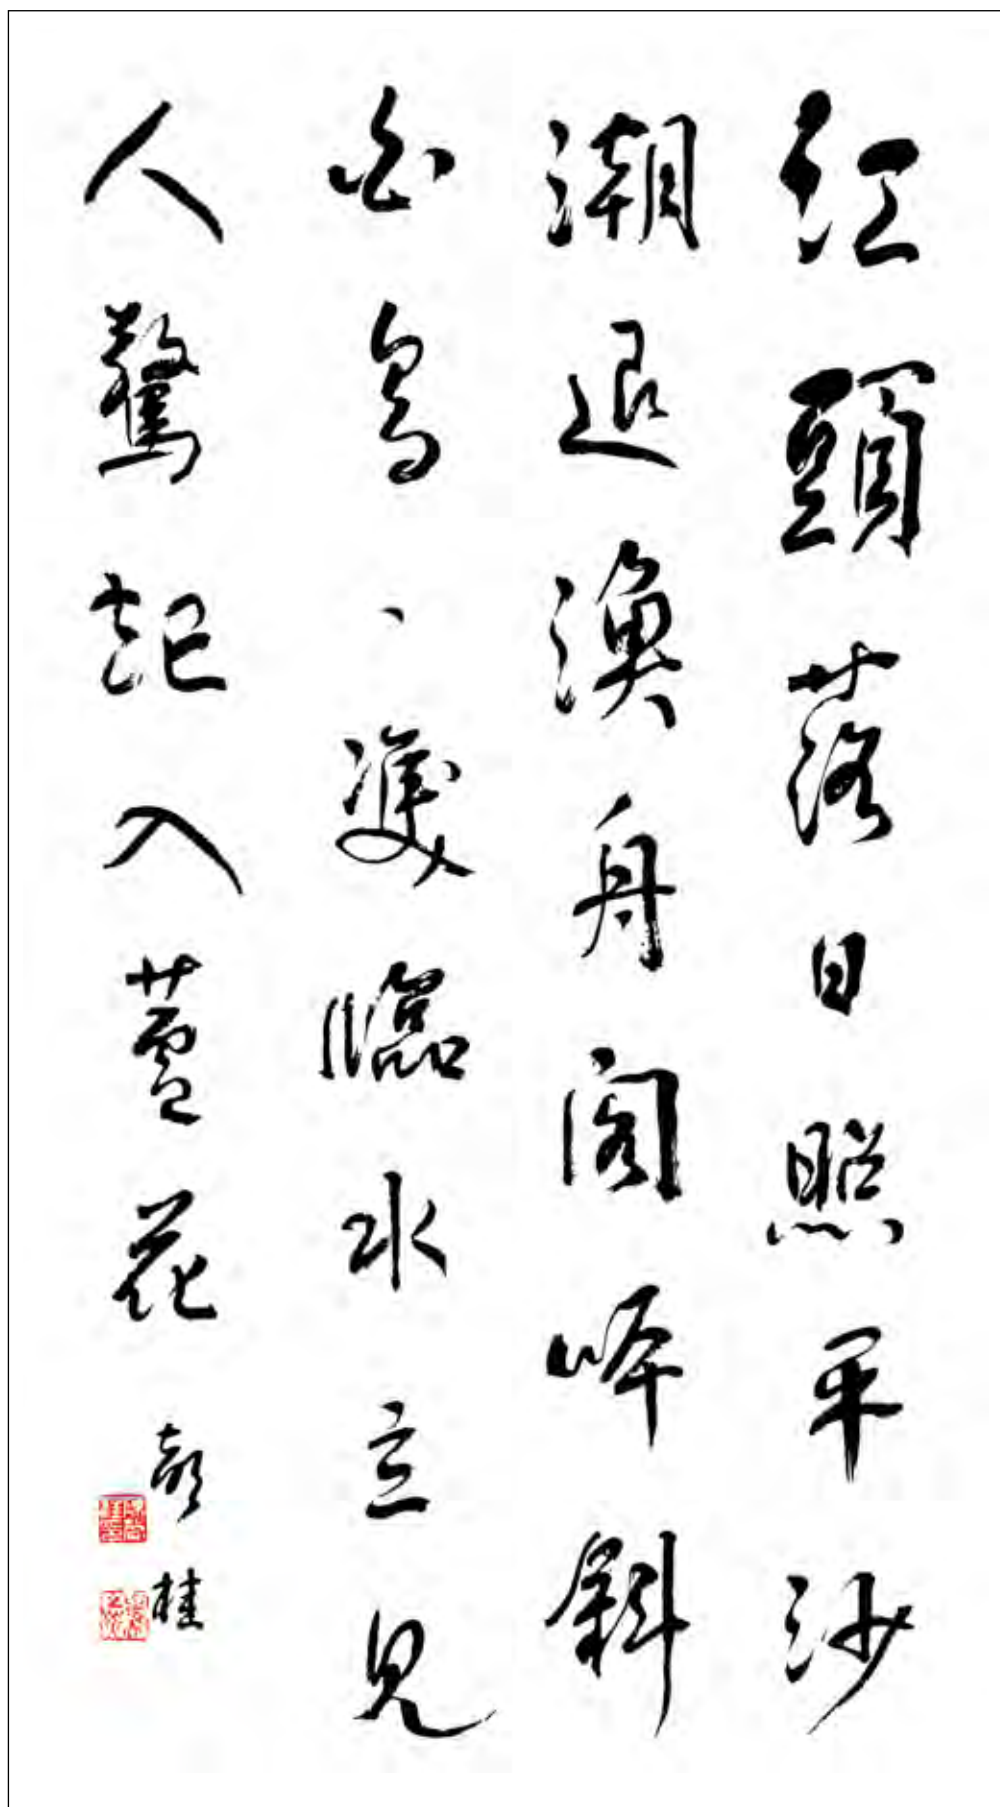 江頭落日照平沙
潮退漁舟閣岸斜
白鳥一雙臨水立見
人驚起入蘆花
桂